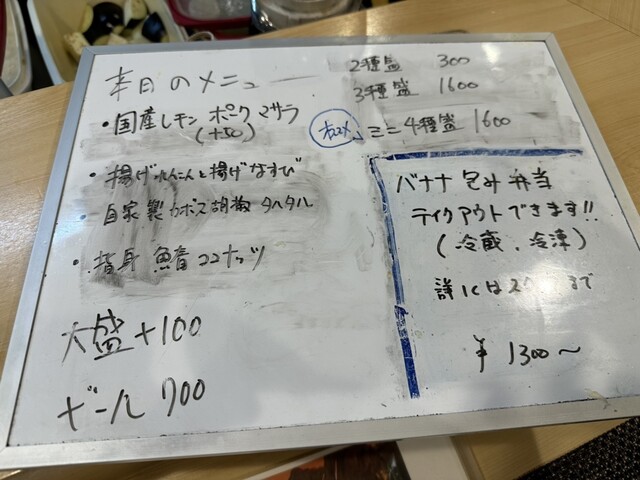 本日のメニュー
・国産レモン ポークマサラ
(+50)
・揚げれんこんと揚げなすび
自家製カボス胡椒タルタル
・指耳 魚香ココナッツ
大盛+100
ビール 700
2種盛 300
3種盛 1600
オススメ ミニ4種盛 1600
バナナ包み弁当
テイクアウトできます!!
(冷蔵、冷凍)
詳しくは
まで
¥1300〜